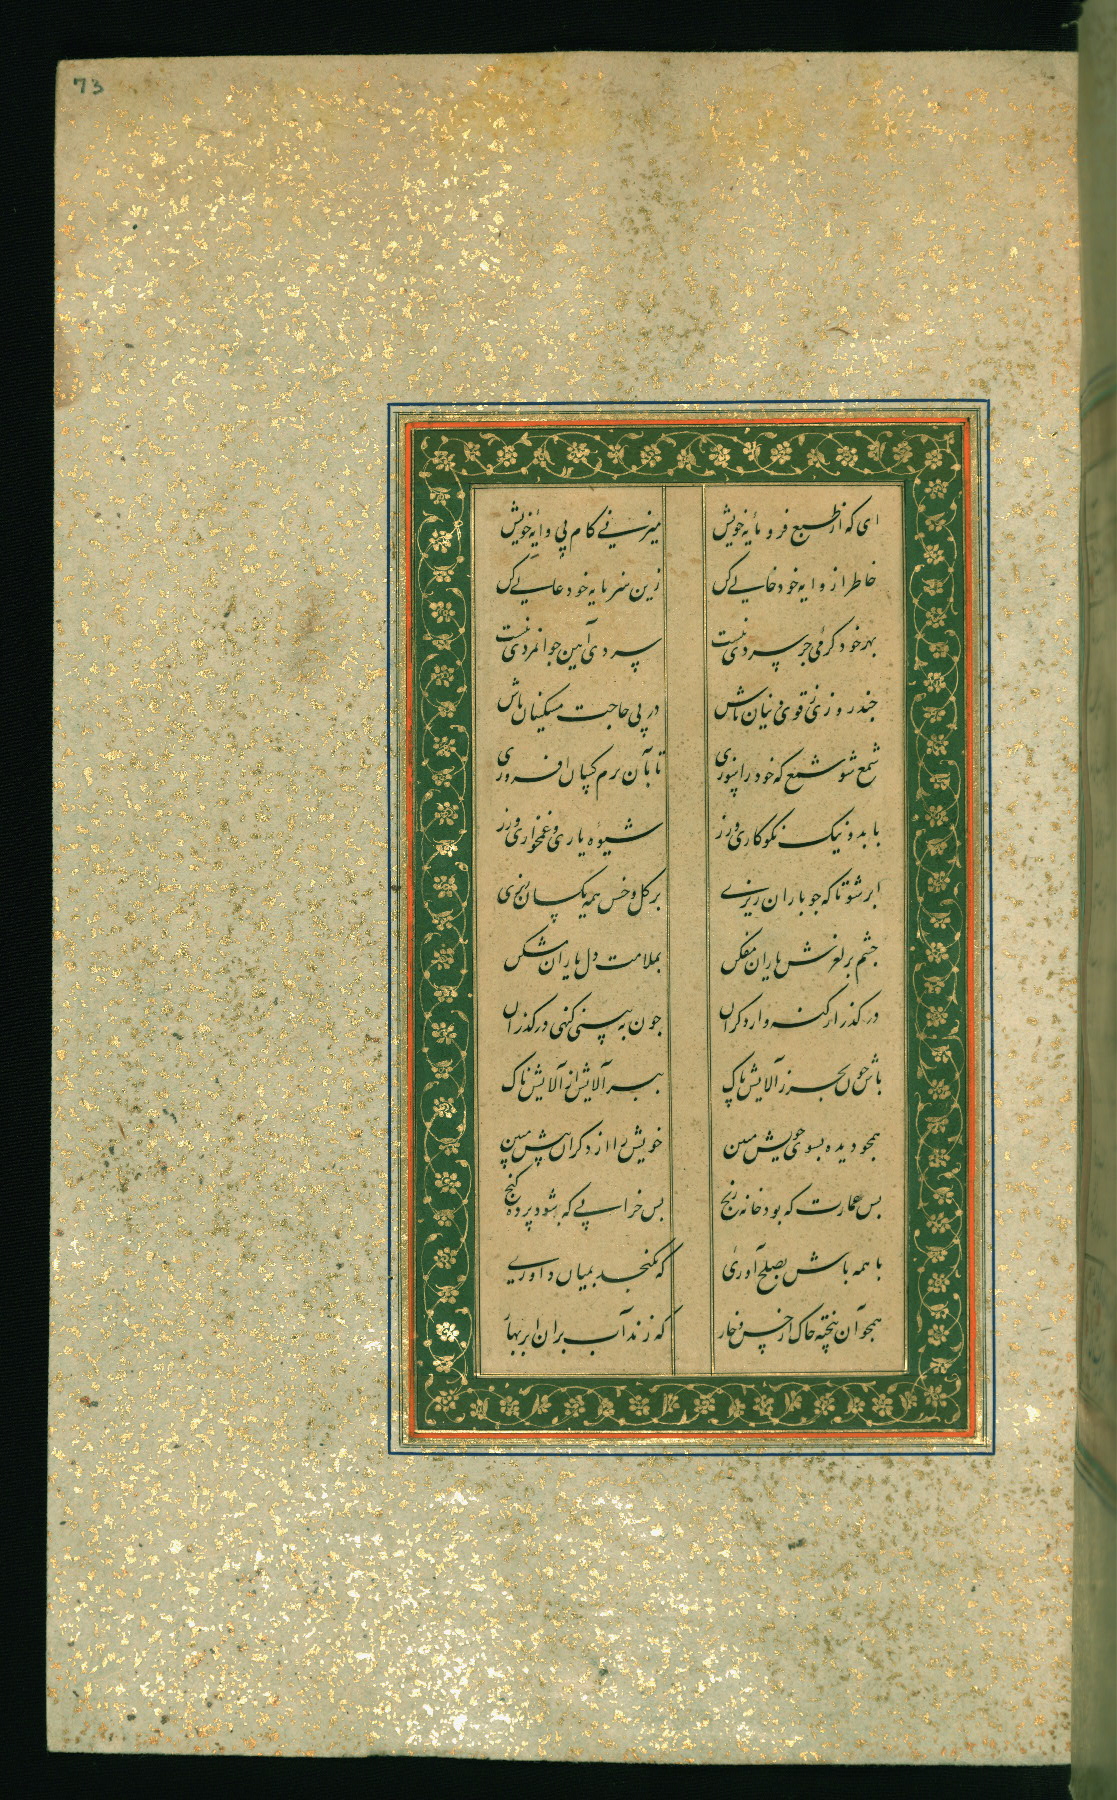 73
ای که از طبع فرومایهٔ خویش میزنی کام پی وایهٔ خویش
خاطر از وایه خود خالی کن زین سرمایه خود عالی کن
بهر خود گرمی جز سردی نیست سردی آیین جوانمردی نیست
چند روزی ز قوی دینان باش در پی حاجت مسکینان باش
شمع شو شمع که خود را سوزی تا بآن بزم کسان افروزی
با بد و نیک نکوکاری ورز شیوه یاری و غمخواری ورز
ابر شو تا که چو باران ریزی بر گل و خس همه یکسان ریزی
چشم بر لغزش یاران مفکن بملامت دل یاران مشکن
در گذر از گنه و از دگران چون به بینی گنهی در گذران
باش چون بحر ز آلایش پاک ببر آلایش از آلایش ناک
همچو دیده بسوی خویش مبین خویش را از دگران پیش مبین
بس عمارت که بود خانه رنج بس خرابی که شود پرده گنج
با همه باش بصلح آوری که نگنجد بمیان داوری
همچو آن پخته خاک از خس و خار که زند آب بران ابر بهار